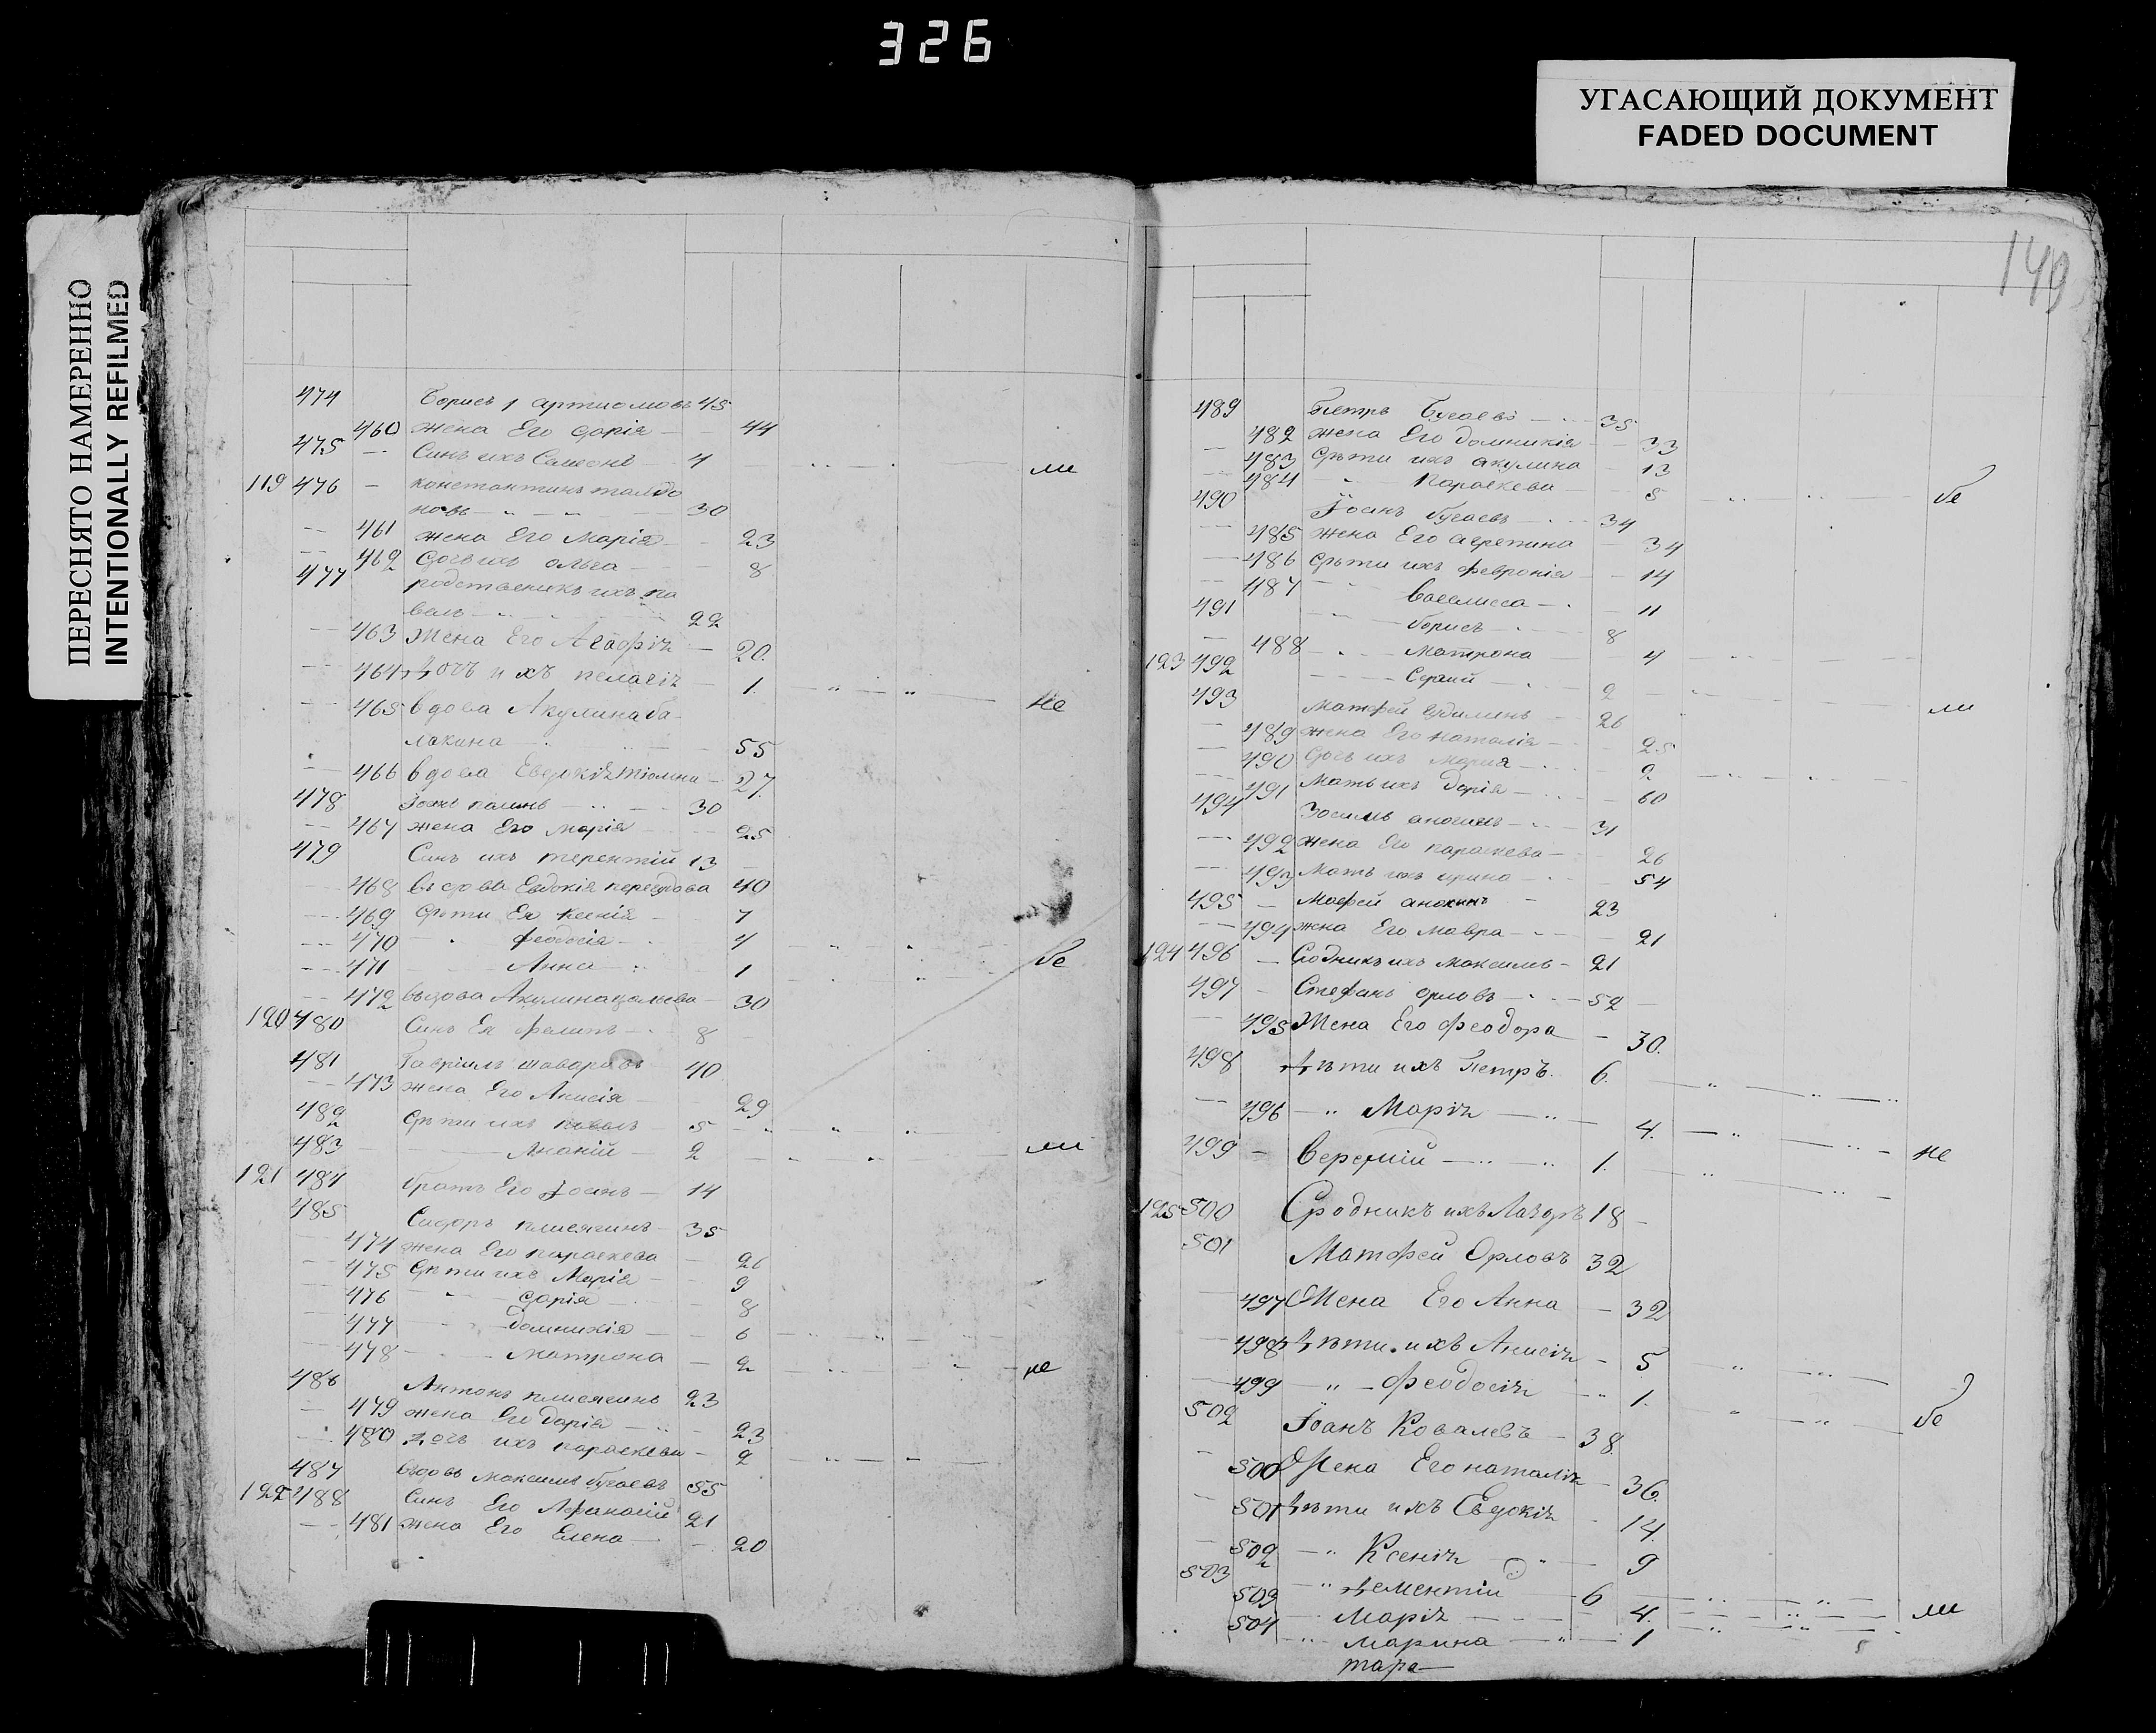 326
УГАСАЮЩИЙ ДОКУМЕНТ
FADED DOCUMENT
ПЕРЕСНЯТО НАМЕРЕННО
INTENTIONALLY REFILMED
474 Борисъ артиомовъ 45
460 жена Его дарія 44
475 Синъ ихъ Симеонъ 4
ли
119 476 константинъ
новъ 30
461 жена Его Марія 23
462 дочъ ихъ ольга 8
477 родственикъ ихъ па
велъ 22
463 Жена Его Агафія 20.
464 дочъ ихъ пелагія 1.
не
465 вдова Акулина ба
лакина 55
466 вдова Евдокія 27.
478 Іоанъ 30
467 жена Его Марія 25
479 Синъ ихъ терентій 13
468 вдова Евдокія 40
469 дѣти Ея Ксенія 7
470 феодосія 4
бе
471 Анна 1
472 вдова Акулина 30
120 480 Синъ Ея филипъ 8
481 Гавріилъ 40
473 жена Его Анисія 29
482 дѣти ихъ павелъ 5
483 Ананій 2
ли
121 484 братъ Его Іоанъ 14
485 Сидоръ 35
474 жена Его параскева 26
475 дѣти ихъ Марія 9
476 дарія 8
477 домникія 6
478 Матрона 2
не
486 Антонъ 23
479 жена Его дарія 23
480 дочъ ихъ параскева 2
487 вдовъ Максимъ бугаевъ 55
122 488 Синъ Его Афанасій 21
481 жена Его Елена 20
149
489 Петръ бугаевъ 35
482 жена Его домникія 33
483 дѣти ихъ акулина 13
484 Параскева 5
бе
490 Іоанъ бугаевъ 34
485 жена Его агрепина 34
486 дѣти ихъ февронія 14
487 василисса 11
491 борисъ 8
488 Матрона 4
123 492 Сергий 2
ли
493 Матфей 26
489 жена Его наталія 25
490 дочъ ихъ Мария 2
491 Мать ихъ дарія 60
494 Зосимъ анохинъ 31
492 жена Его параскева 26
493 Мать ихъ ирина 54
495 Мафей анохинъ 23
494 жена Его Мавра 21
124 496 Сродникъ ихъ Максимъ 21
497 Стефанъ орловъ 52
495 Жена Его феодора 30.
498 дѣти ихъ Петръ. 6.
496 Марія 4.
499 Веремій 1.
не
125 500 Сродникъ ихъ Лазоръ 18
501 Матфей Орловъ 32
497 Жена Его Анна 32
498 дѣти ихъ Анисія 5
499 феодосія 1.
бе
502 Іоанъ Ковалевъ 38.
500 Жена Его наталія 36.
501 дѣти ихъ Евдокія 14.
502 Ксенія 9
503 дементій 6
503 Марія 4.
ли
504 Марина 1